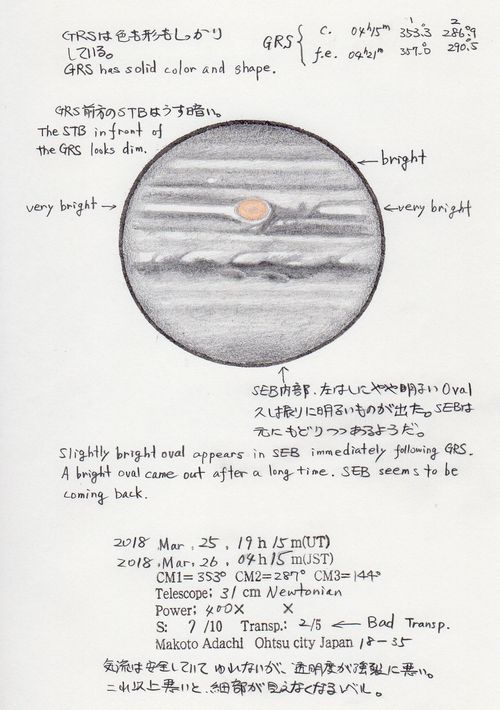 GRSは色も形もしっかり
している。
GRS has solid color and shape.
1 2
GRS { c. 04h15m 353.°3 286.°9
f.e. 04h21m 357.°0 290.°5
GRS前方のSTBはうす暗い。
The STB in front of
the GRS looks dim.
← bright
very bright →
← very bright
↑
SEB内部、左はしにやや明るい Oval
久しぶりに明るいものが出た。SEBは
元にもどりつつあるようだ。
Slightly bright oval appears in SEB immediately following GRS.
A bright oval came out after a long time. SEB seems to be
coming back.
2018 .Mar . 25 . 19h 15m(UT)
2018 .Mar . 26 . 04h 15m(JST)
CM1= 353° CM2= 287° CM3= 144°
Telescope; 31 cm Newtonian
Power; 400× ×
S: 7 /10 Transp.: 2/5 ← Bad Transp.
Makoto Adachi Ohtsu city Japan 18-35
気流は安定していて ゆれないが、透明度が強烈に悪い。
これ以上悪いと、細部が見えなくなるレベル。